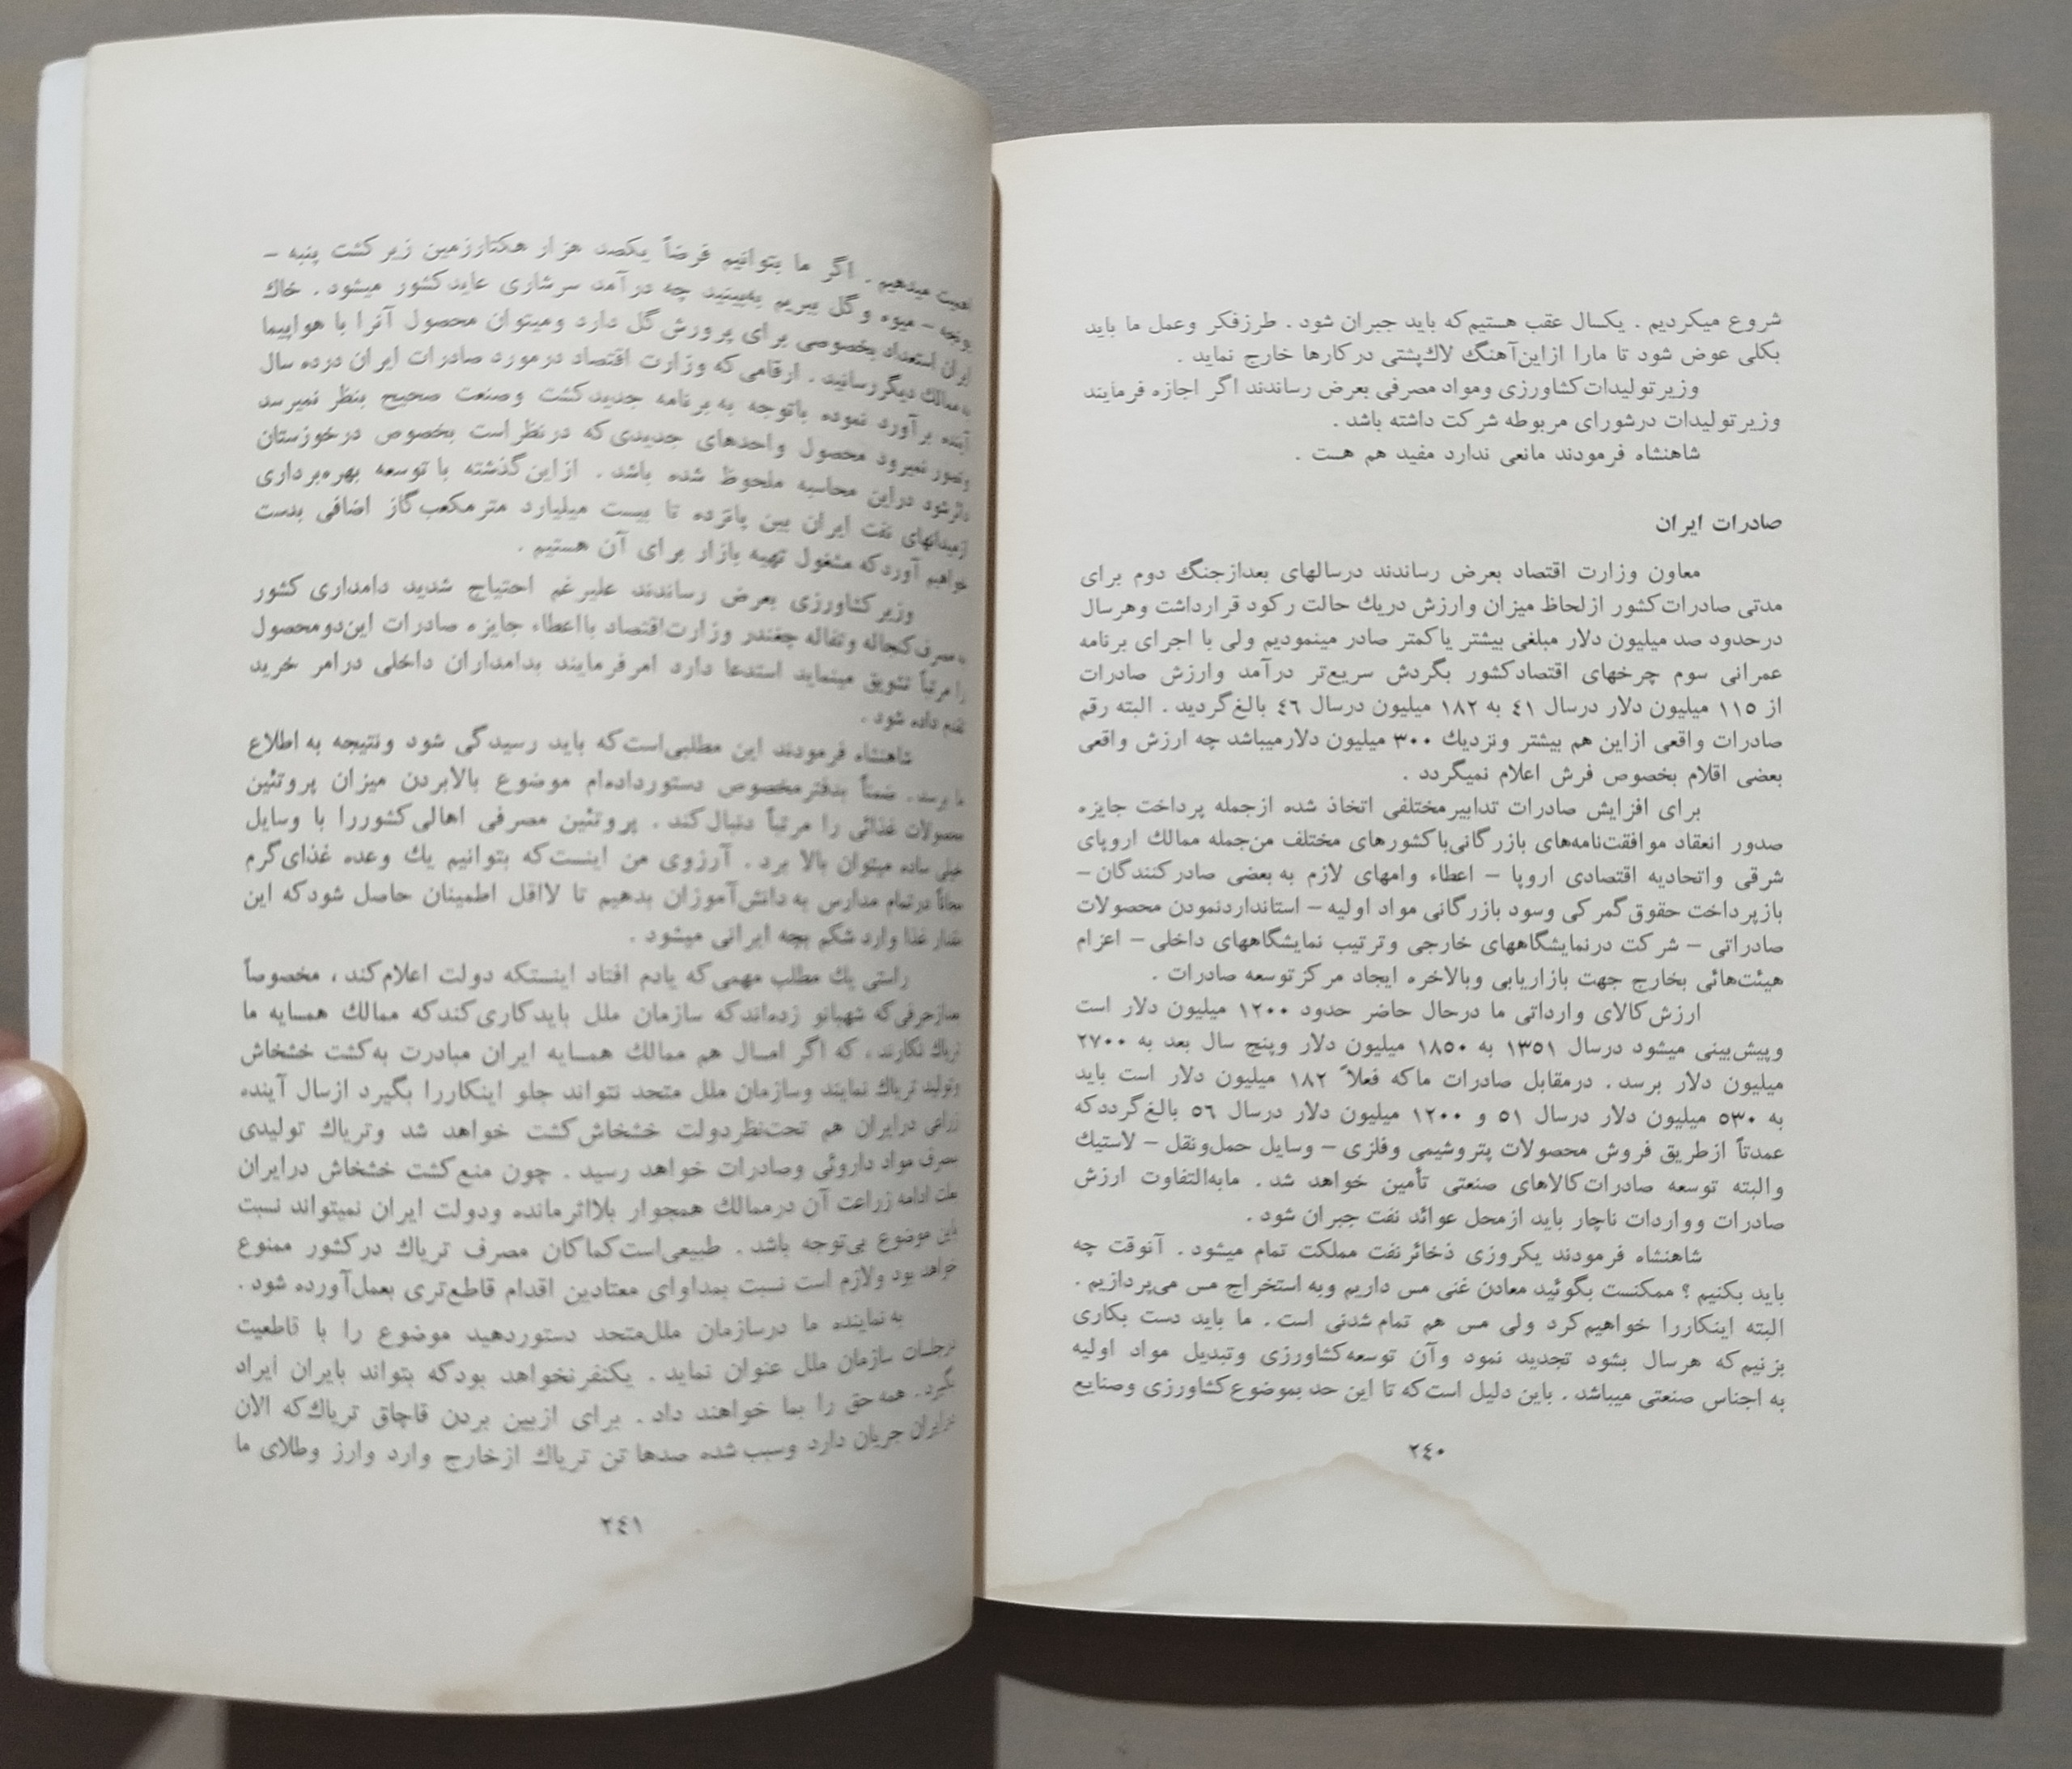 شروع میکردیم . یکسال عقب هستیم که باید جبران شود . طرزفکر وعمل ما باید
بکلی عوض شود تا مارا ازاین‌آهنگ لاك‌پشتی درکارها خارج نماید .
وزیرتولیدات‌کشاورزی ومواد مصرفی بعرض رساندند اگر اجازه فرمایند
وزیرتولیدات درشورای مربوطه شرکت داشته باشد .
شاهنشاه فرمودند مانعی ندارد مفید هم هست .
صادرات ایران
معاون وزارت اقتصاد بعرض رساندند درسالهای بعدازجنگ دوم برای
مدتی صادرات‌کشور ازلحاظ میزان وارزش دریك حالت رکود قرارداشت وهرسال
درحدود صد میلیون دلار مبلغی بیشتر یاکمتر صادر مینمودیم ولی با اجرای برنامه
عمرانی سوم چرخهای اقتصادکشور بگردش سریع‌تر درآمد وارزش صادرات
از ۱۱۵ میلیون دلار درسال ٤۱ به ۱۸۲ میلیون درسال ٤٦ بالغ‌گردید . البته رقم
صادرات واقعی ازاین هم بیشتر ونزدیك ۳۰۰ میلیون دلارمیباشد چه ارزش واقعی
بعضی اقلام بخصوص فرش اعلام نمیگردد .
برای افزایش صادرات تدابیرمختلفی اتخاذ شده ازجمله پرداخت جایزه
صدور انعقاد موافقت‌نامه‌های بازرگانی‌باکشورهای مختلف من‌جمله ممالك اروپای
شرقی واتحادیه اقتصادی اروپا – اعطاء وامهای لازم به بعضی صادرکنندگان –
بازپرداخت حقوق‌گمرکی وسود بازرگانی مواد اولیه – استانداردنمودن محصولات
صادراتی – شرکت درنمایشگاههای خارجی وترتیب نمایشگاههای داخلی – اعزام
هیئت‌هائی بخارج جهت بازاریابی وبالاخره ایجاد مرکزتوسعه صادرات .
ارزش‌کالای وارداتی ما درحال حاضر حدود ۱۲۰۰ میلیون دلار است
وپیش‌بینی میشود درسال ۱۳۵۱ به ۱۸۵۰ میلیون دلار وپنج سال بعد به ۲۷۰۰
میلیون دلار برسد . درمقابل صادرات ماکه فعلاً ۱۸۲ میلیون دلار است باید
به ۵۳۰ میلیون دلار درسال ۵۱ و ۱۲۰۰ میلیون دلار درسال ۵٦ بالغ‌گرددکه
عمدتاً ازطریق فروش محصولات پتروشیمی وفلزی – وسایل حمل‌ونقل – لاستیك
والبته توسعه صادرات‌کالاهای صنعتی تأمین خواهد شد . مابه‌التفاوت ارزش
صادرات وواردات ناچار باید ازمحل عوائد نفت جبران شود .
شاهنشاه فرمودند یکروزی ذخائرنفت مملکت تمام میشود . آنوقت چه
باید بکنیم ؟ ممکنست بگوئید معادن غنی مس داریم وبه استخراج مس می‌پردازیم .
البته اینکاررا خواهیم‌کرد ولی مس هم تمام شدنی است . ما باید دست بکاری
بزنیم‌که هرسال بشود تجدید نمود وآن توسعه‌کشاورزی وتبدیل مواد اولیه
به اجناس صنعتی میباشد . باین دلیل است‌که تا این حد بموضوع‌کشاورزی وصنایع
۲٤۰
اهمیت میدهیم . اگر ما بتوانیم فرضاً یکصد هزار هکتارزمین زیرکشت پنبه –
یونجه – میوه وگل ببریم به‌بینید چه درآمد سرشاری عایدکشور میشود . خاك
ایران استعداد بخصوصی برای پرورش‌گل دارد ومیتوان محصول آنرا با هواپیما
به ممالك دیگررسانید . ارقامی‌که وزارت اقتصاد درمورد صادرات ایران درده سال
آینده برآورد نموده باتوجه به برنامه جدیدکشت وصنعت صحیح بنظر نمیرسد
وتصور نمیرود محصول واحدهای جدیدی‌که درنظراست بخصوص درخوزستان
دائرشود دراین محاسبه ملحوظ شده باشد . ازاین‌گذشته باتوسعه بهره‌برداری
ازمیدانهای نفت ایران بین پانزده تا بیست میلیارد مترمکعب‌گاز اضافی بدست
خواهیم آوردکه مشغول تهیه بازار برای آن هستیم .
وزیرکشاورزی بعرض رساندند علیرغم احتیاج شدید دامداری کشور
به مصرف‌کنجاله وتفاله چغندر وزارت‌اقتصاد بااعطاء جایزه صادرات این‌دومحصول
را مرتباً تشویق مینماید استدعا دارد امرفرمایند بدامداران داخلی درامر خرید
تقدم داده شود .
شاهنشاه فرمودند این مطلبی‌است‌که باید رسیدگی شود ونتیجه به اطلاع
ما برسد . ضمناً بدفترمخصوص دستورداده‌ام موضوع بالابردن میزان پروتئین
محصولات غذائی را مرتباً دنبال‌کند . پروتئین مصرفی اهالی‌کشوررا با وسایل
خیلی ساده میتوان بالا برد . آرزوی من اینست‌که بتوانیم یك وعده غذای‌گرم
مجاناً درتمام مدارس به دانش‌آموزان بدهیم تا لااقل اطمینان حاصل شودکه این
مقدار غذا وارد شکم بچه ایرانی میشود .
راستی یك مطلب مهمی‌که یادم افتاد اینستکه دولت اعلام‌کند ، مخصوصاً
بعدازحرفی‌که شهبانو زده‌اندکه سازمان ملل بایدکاری‌کندکه ممالك همسایه ما
تریاك نکارند ، که اگر امسال هم ممالك همسایه ایران مبادرت به‌کشت خشخاش
وتولید تریاك نمایند وسازمان ملل متحد نتواند جلو اینکاررا بگیرد ازسال آینده
زراعی درایران هم تحت‌نظردولت خشخاش‌کشت خواهد شد وتریاك تولیدی
بمصرف مواد داروئی وصادرات خواهد رسید . چون منع‌کشت خشخاش درایران
بعلت ادامه زراعت آن درممالك همجوار بلااثرمانده ودولت ایران نمیتواند نسبت
باین موضوع بی‌توجه باشد . طبیعی‌است‌کماکان مصرف تریاك درکشور ممنوع
خواهد بود ولازم است نسبت بمداوای معتادین اقدام قاطع‌تری بعمل‌آورده شود .
به نماینده ما درسازمان ملل‌متحد دستوردهید موضوع را با قاطعیت
درجلسات سازمان ملل عنوان نماید . یکنفرنخواهد بودکه بتواند بایران ایراد
بگیرد . همه حق را بما خواهند داد . برای ازبین بردن قاچاق تریاك‌که الان
درایران جریان دارد وسبب شده صدها تن تریاك ازخارج وارد وارز وطلای ما
۲٤۱